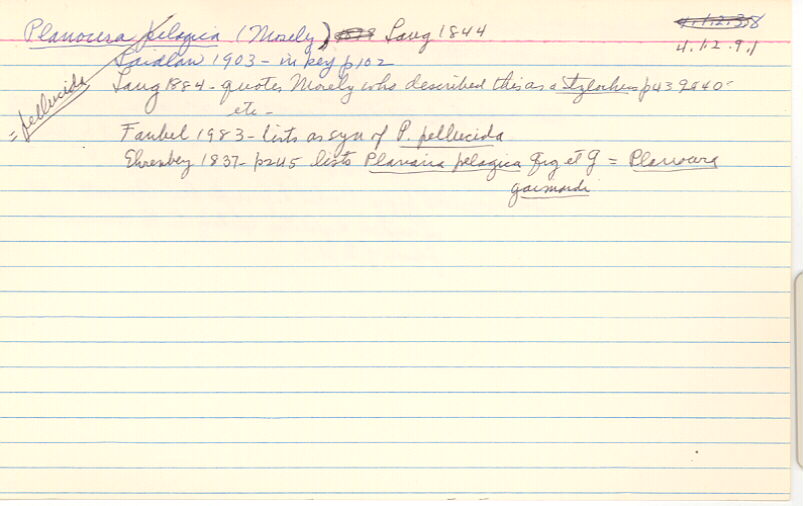 Planocera pelagica (Mosely) Lang 1844
4.1.2.9.1
Laidlaw 1903 - in key p102
= pellucida
Lang 1884 - quotes Mosely who described this as a Stylochus p439 & 40 -
etc -
Faubel 1983 - lists as syn of P. pellucida
Ehrenbey 1837 - p245 lists Planaria pelagica et G = Planocera
gaimardi